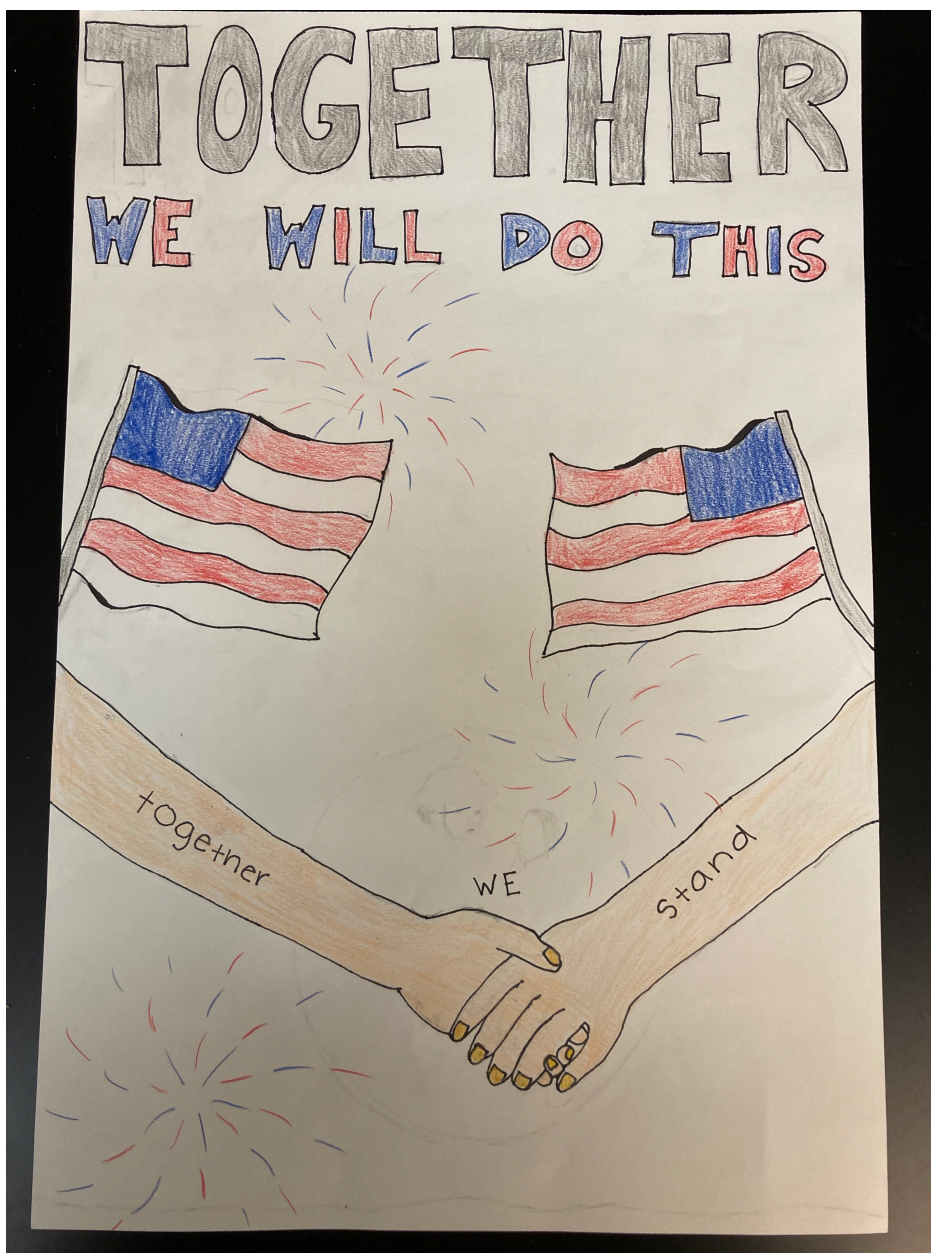 TOGETHER
WE WILL DO THIS
together
WE
stand